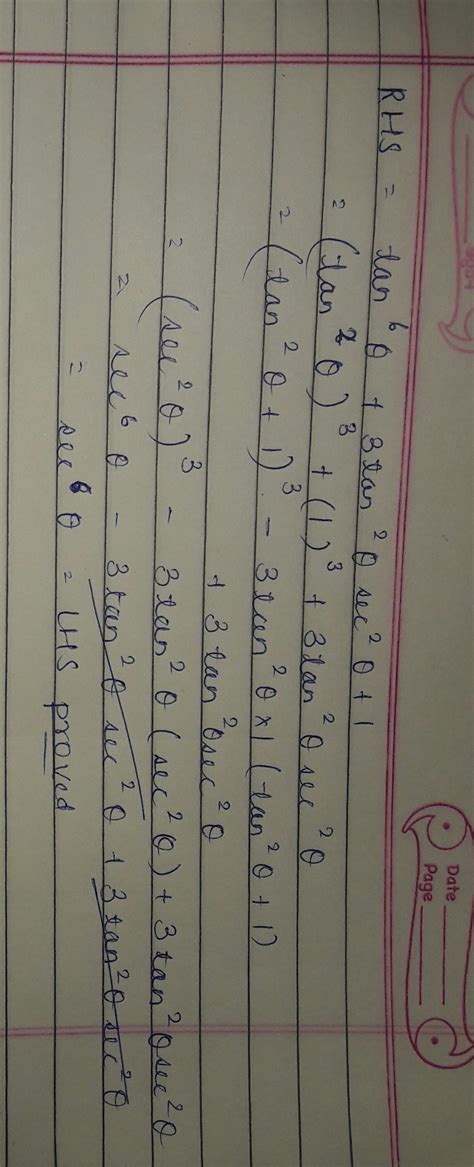 Date
Page
RHS = tan⁶θ + 3tan²θ sec²θ + 1
= (tan²θ)³ + (1)³ + 3tan²θ sec²θ
= (tan²θ + 1)³ - 3tan²θ×1 (tan²θ + 1)
+ 3tan²θsec²θ
= (sec²θ)³ - 3tan²θ (sec²θ) + 3tan²θsec²θ
= sec⁶θ - 3tan²θ sec²θ + 3tan²θ sec²θ
= sec⁶θ = LHS proved